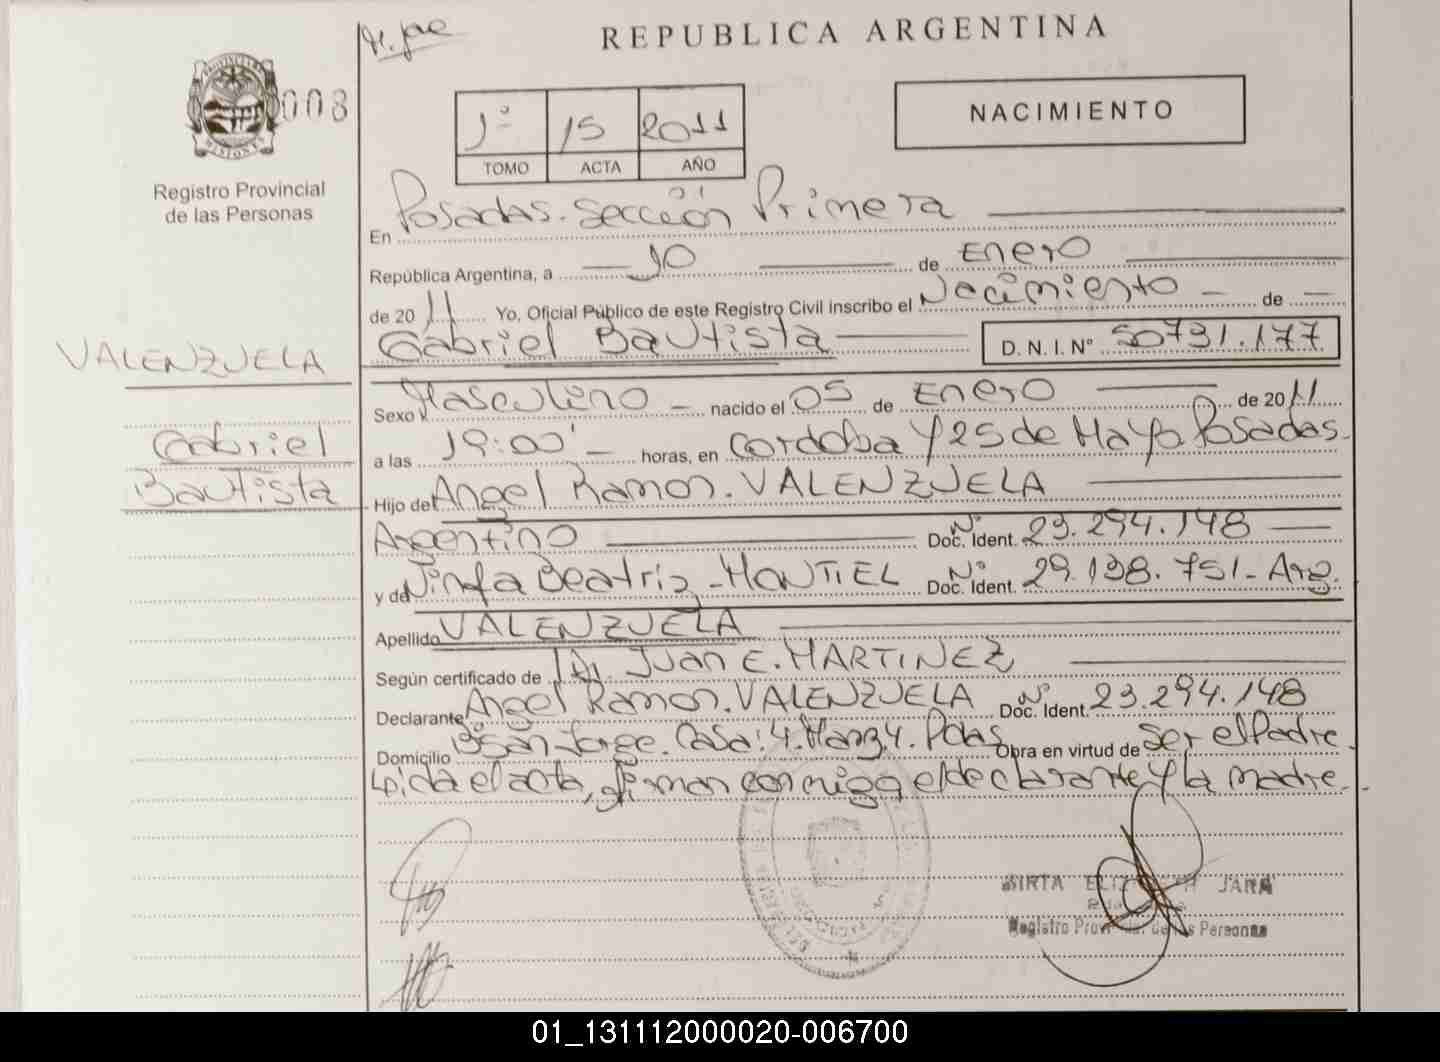 REPUBLICA ARGENTINA
008
NACIMIENTO
1º 15 2011
TOMO ACTA AÑO
Registro Provincial
de las Personas
En Posadas. Sección Primera
República Argentina, a 10 de Enero
de 2011 Yo, Oficial Público de este Registro Civil inscribo el Nacimiento - de -
VALENZUELA
Gabriel Bautista D. N. I. Nº 50731.177
Sexo Masculino - nacido el 05 de Enero de 2011
Gabriel
a las 19:00' - horas, en Cordoba y 25 de Mayo Posadas.
Bautista
Hijo de Angel Ramon. VALENZUELA
Argentino Nº Doc. Ident. 23.294.148
y de Ninfa Beatriz - MONTIEL Nº Doc. Ident. 29.138.751 - Arg.
Apellido VALENZUELA
Según certificado de Juan E. MARTINEZ
Declarante Angel Ramon. VALENZUELA Nº Doc. Ident. 23.294.148
Domicilio Bº San Jorge. Casa: 4. Manz 4. Pdas Obra en virtud de Ser el Padre.
Leida el acta, firman conmigo el declarante y la madre.
MIRTA JARA
Registro Personas
01_131112000020-006700